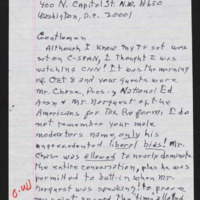 400 N. Capitol St. N.W. N650
Washington, D.C. 20001
Gentlemen
Although I knew my TV set was
set on C-SPAN, I thought I was
watching CNN! It was the morning
of Oct 8 and your guests were
Mr. Chase, Pres. of National Ed
Assn & Mr. Norquest of the
Americans for Tax Reform. I do
not remember your male
moderators name, only his
unprecedented liberal bias! Mr.
Chase was allowed to nearly dominate
the entire conversation, plus he was
permitted to butt-in when Mr.
Norquest was speaking! To prove
my point the time allowed